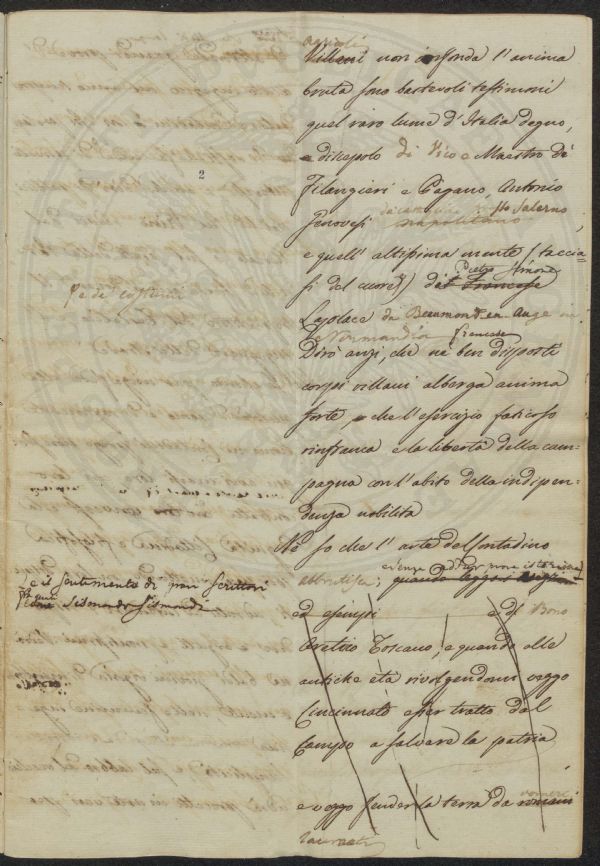 agricoli
Villani non infonda l'anima
bruta sono bastevoli testimoni
quel raro lume d'Italia degno,
e discepolo di Vico e Maestro di
2
Filangieri e Pagano, Antonio
Genovesi napolitano Salerno,
e quell' altissima mente (taccia=
Pietro Simone
si del cuore) del Francese
Laplace da Beaumont en Auge in
Normandia francese
Dirò anzi, che ne' ben disposti
corpi villani alberga anima
forte, che l'esercizio faticoso
rinfranca e la libertà della cam=
pagna con l'abito della indipen=
denza nobilita
Nè so che l'arte del contadino
abbrutisca; quando leggo
e il sentimento di gran scrittori
Sismondo Sismondi
ed esempi e di Bono
Aretino Toscano, e quando alle
antiche età rivolgendomi veggo
Cincinnato esser tratto dal
Campo a salvare la patria
e veggo fender la terra da romani
vomeri
laureati